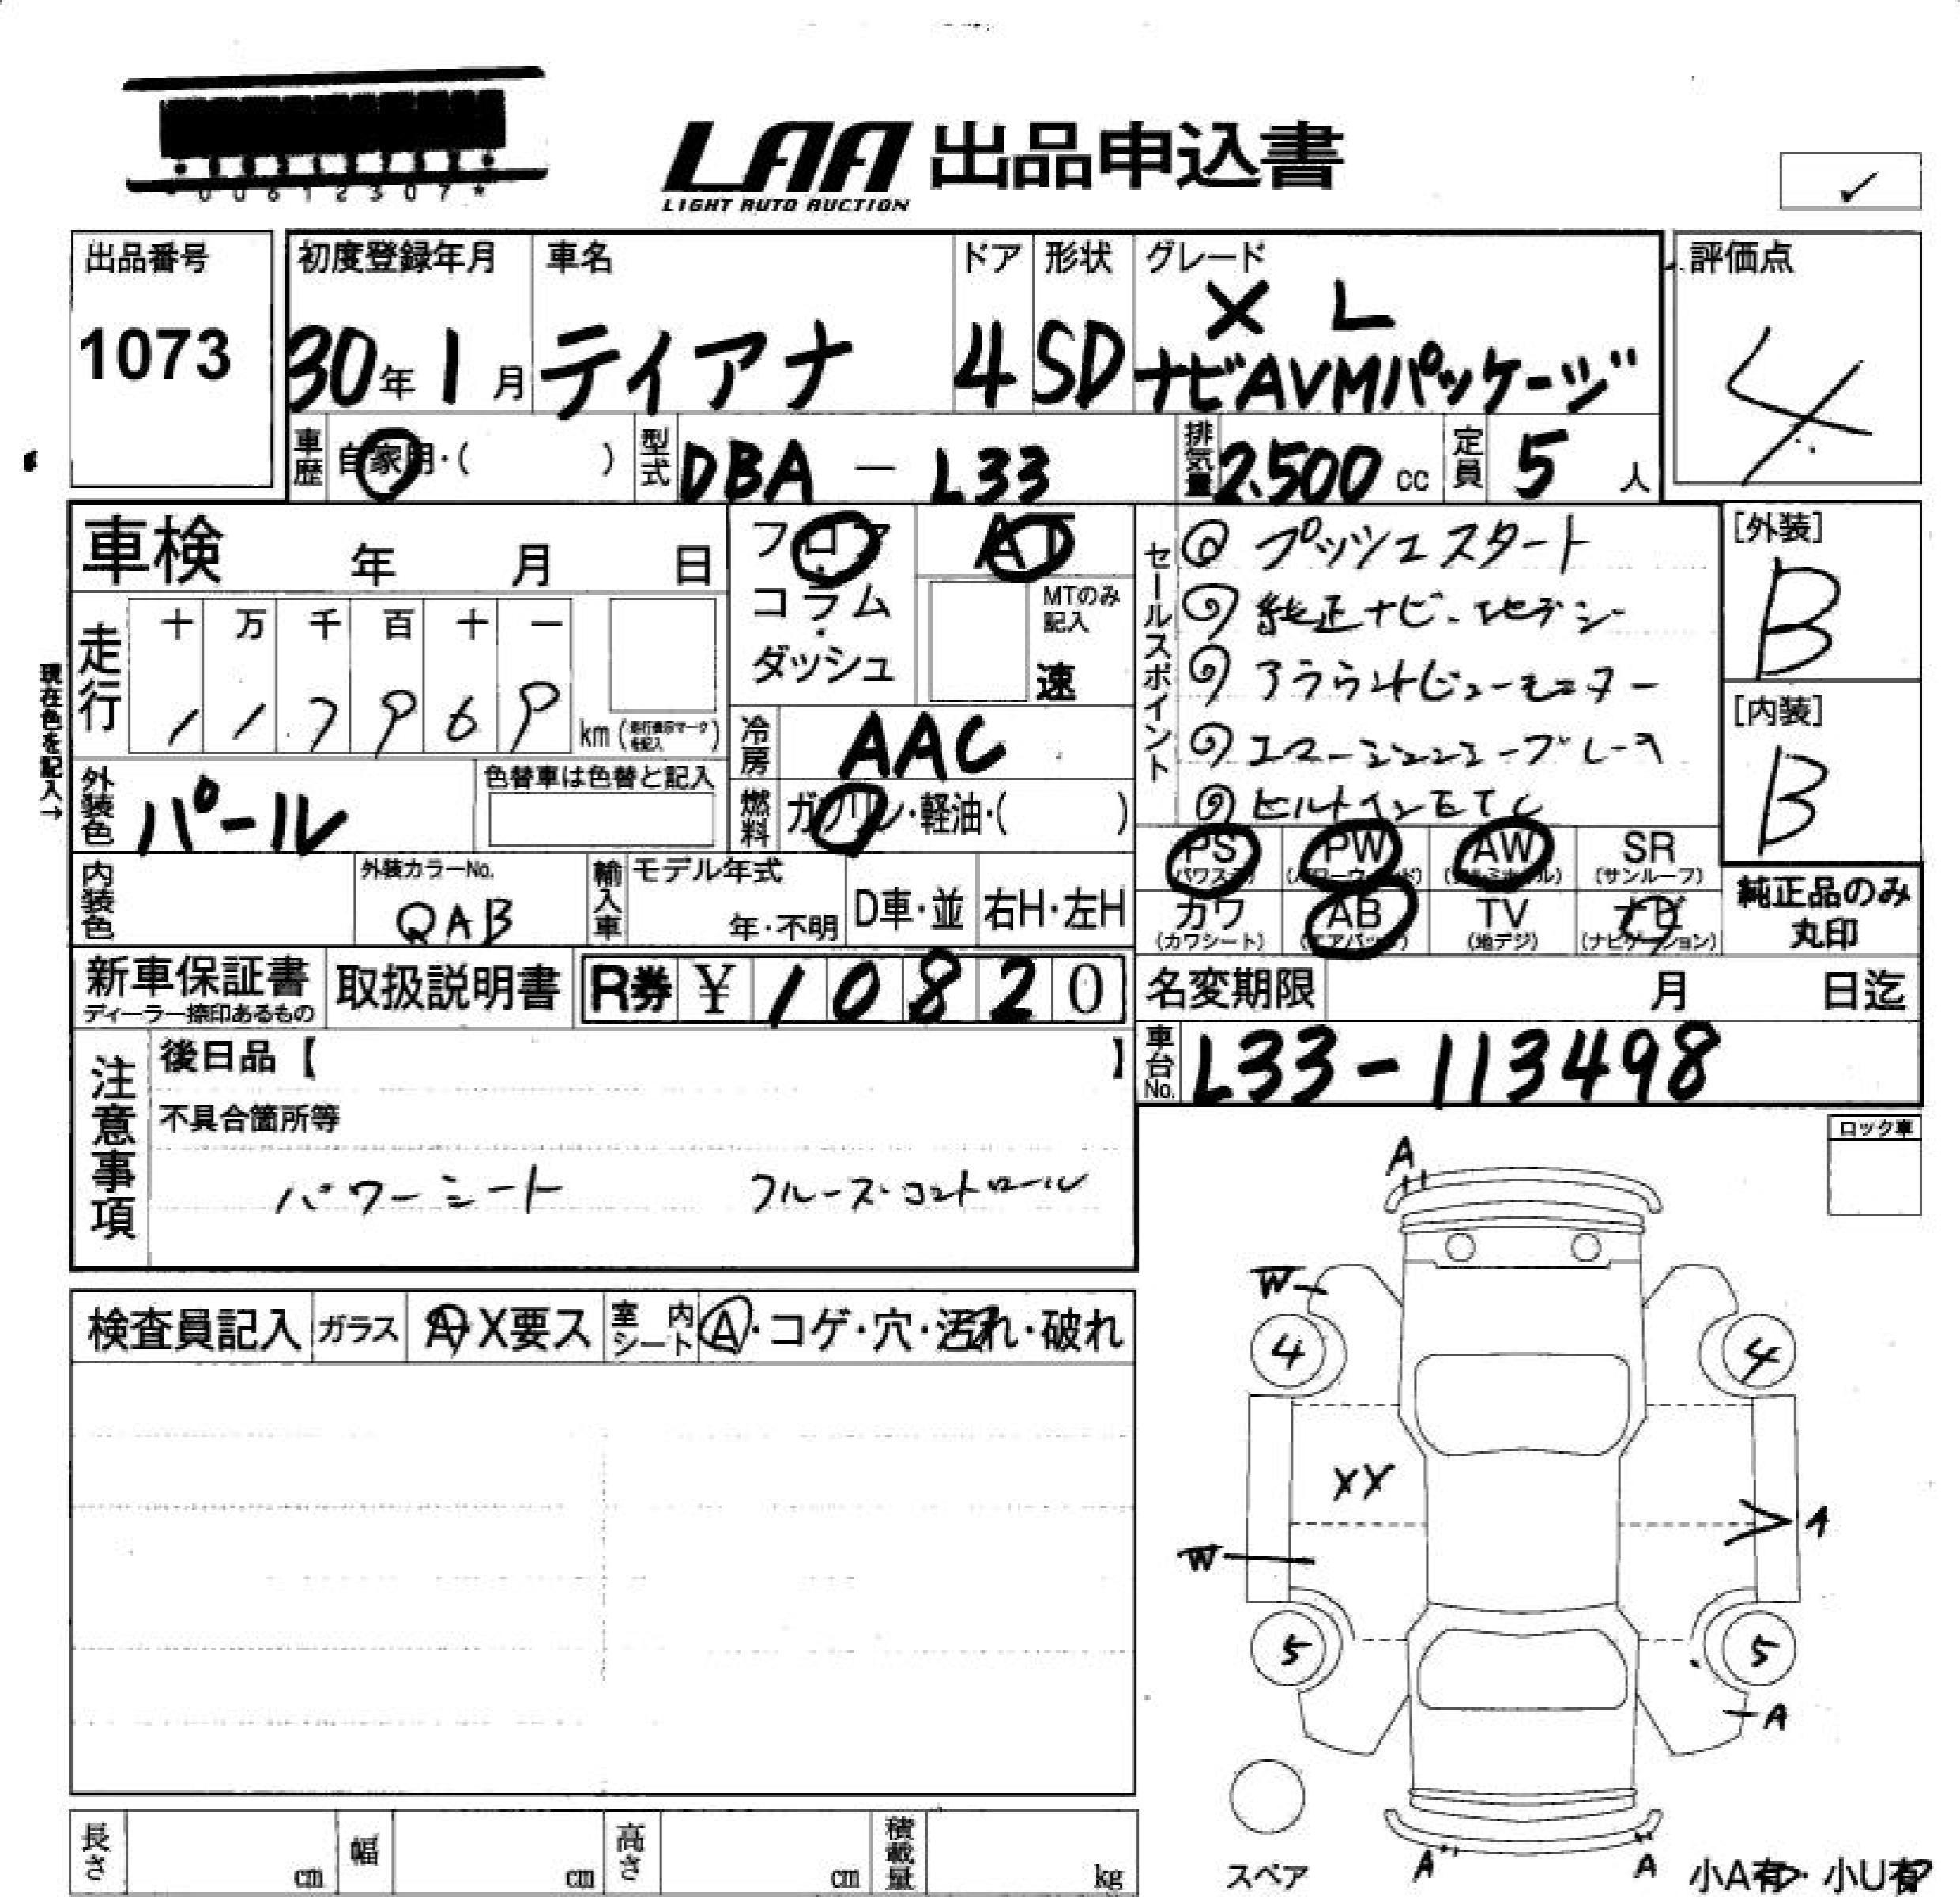 00612307*
LAA 出品申込書
LIGHT AUTO AUCTION
✓
出品番号
1073
初度登録年月
30年1月
車名
ティアナ
ドア
4
形状
SD
グレード
X L
ナビAVMパッケージ
評価点
4
車歴
自家用・( )
型式
DBA - L33
排気量
2.500 cc
定員
5人
車検 年 月 日
フロア
コラム
・
ダッシュ
AT
MTのみ
記入
速
走行
十 万 千 百 十 一
1 1 7 9 6 9 km (走行表示マークを記入)
現在色を記入→
冷房
AAC
外装色
パール
色替車は色替と記入
燃料
ガソリン・軽油・( )
内装色
外装カラーNo.
QAB
輸入車
モデル年式
年・不明
D車・並
右H・左H
新車保証書
ディーラー捺印あるもの
取扱説明書
R券 ¥10820
セールスポイント
プッシュスタート
純正ナビ・地デジ
アラウンドビューモニター
エマージェンシーブレーキ
ビルトインETC
[外装]
B
[内装]
B
PS
(パワステ)
PW
(パワーウィンド)
AW
(アルミホイル)
SR
(サンルーフ)
カワ
(カワシート)
AB
(エアバック)
TV
(地デジ)
ナビ
(ナビゲーション)
純正品のみ
丸印
名変期限 月 日迄
車台No.
L33-113498
注意事項
後日品【 】
不具合箇所等
パワーシート クルーズ・コントロール
ロック車
検査員記入
ガラス
A・X要ス
室内
シート
A・コゲ・穴・汚れ・破れ
A
W
4
4
XX
W
A
5
5
A
スペア
A
A
小A有・小U有
長さ cm
幅 cm
高さ cm
積載量 kg